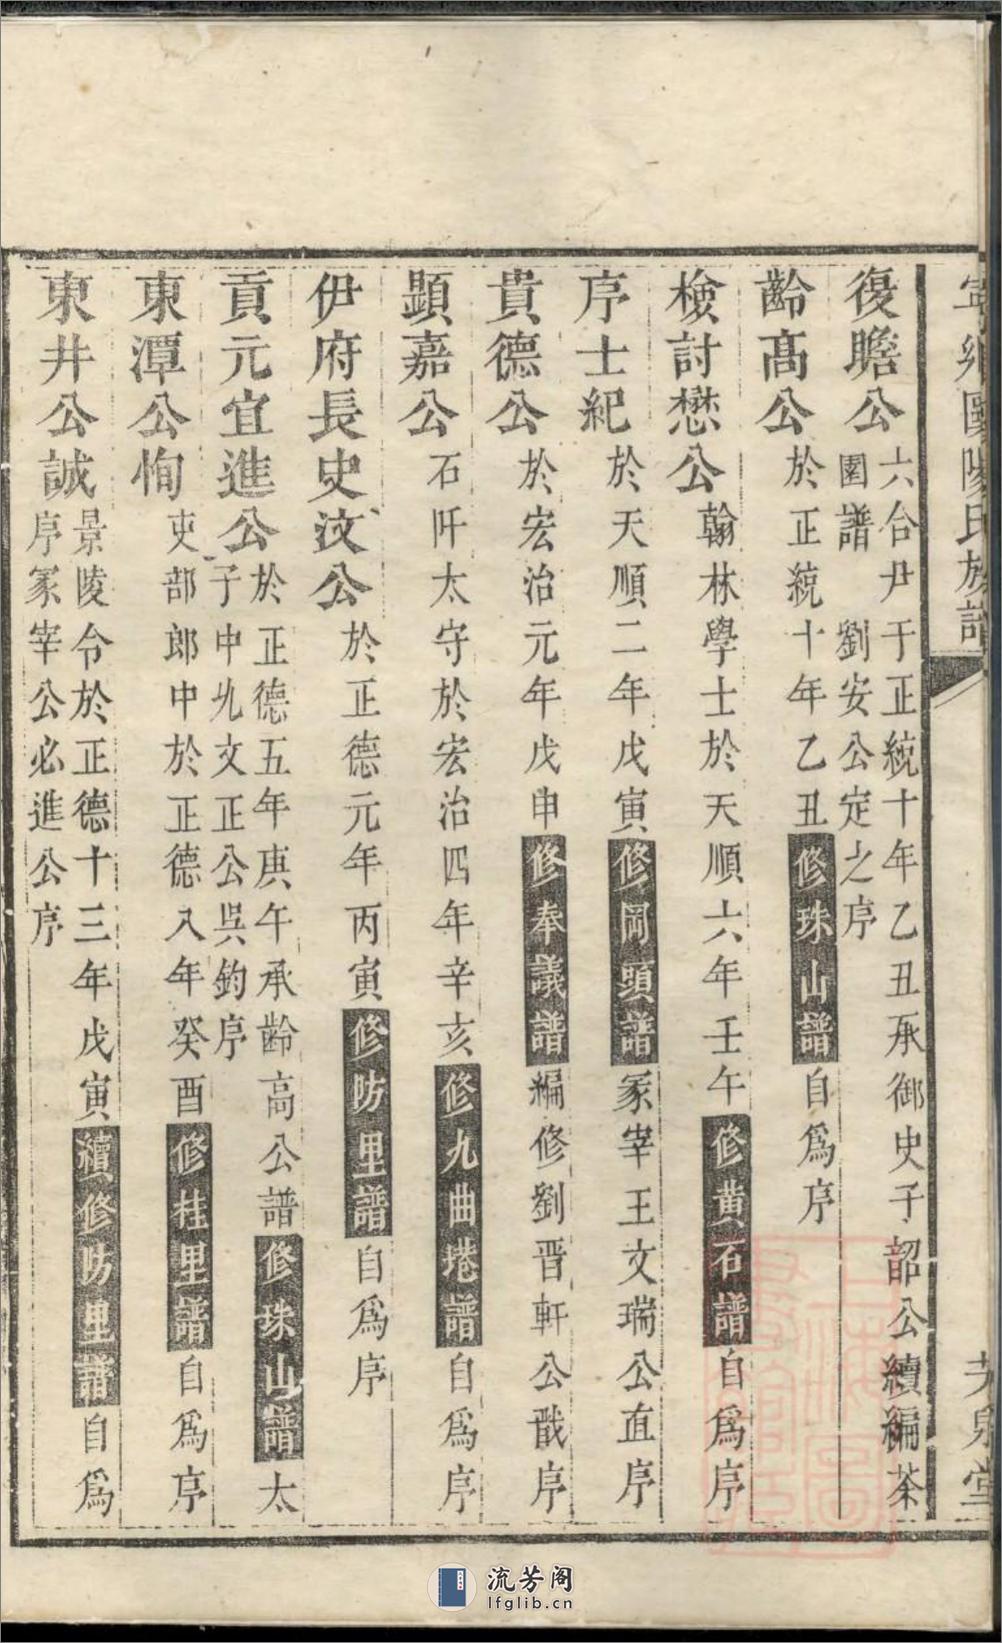 復瞻公 六合尹于正統十年乙丑承御史子韶公續編茶
園譜 劉安公定之序
齡高公 於正統十年乙丑修珠山譜自爲序
檢討懋公 翰林學士於天順六年壬午修黃石譜自爲序
序士紀 於天順二年戊寅修岡頭譜冡宰王文瑞公直序
貴德公 於宏治元年戊申修奉議譜編修劉晋軒公戩序
顕嘉公 石阡太守於宏治四年辛亥修九曲塘譜自爲序
伊府長史汶公 於正德元年丙寅修防里譜自爲序
貢元宜進公 於正德五年庚午承齡高公譜修珠山譜太
子中允文正公吳鈞序
東潭公恂 吏部郎中於正德八年癸酉修桂里譜自爲序
東井公誠 景陵令於正德十三年戊寅續修防里譜自爲
序冡宰公必進公序
鄉歐陽氏族譜
堂
流芳阁
lfglib.cn